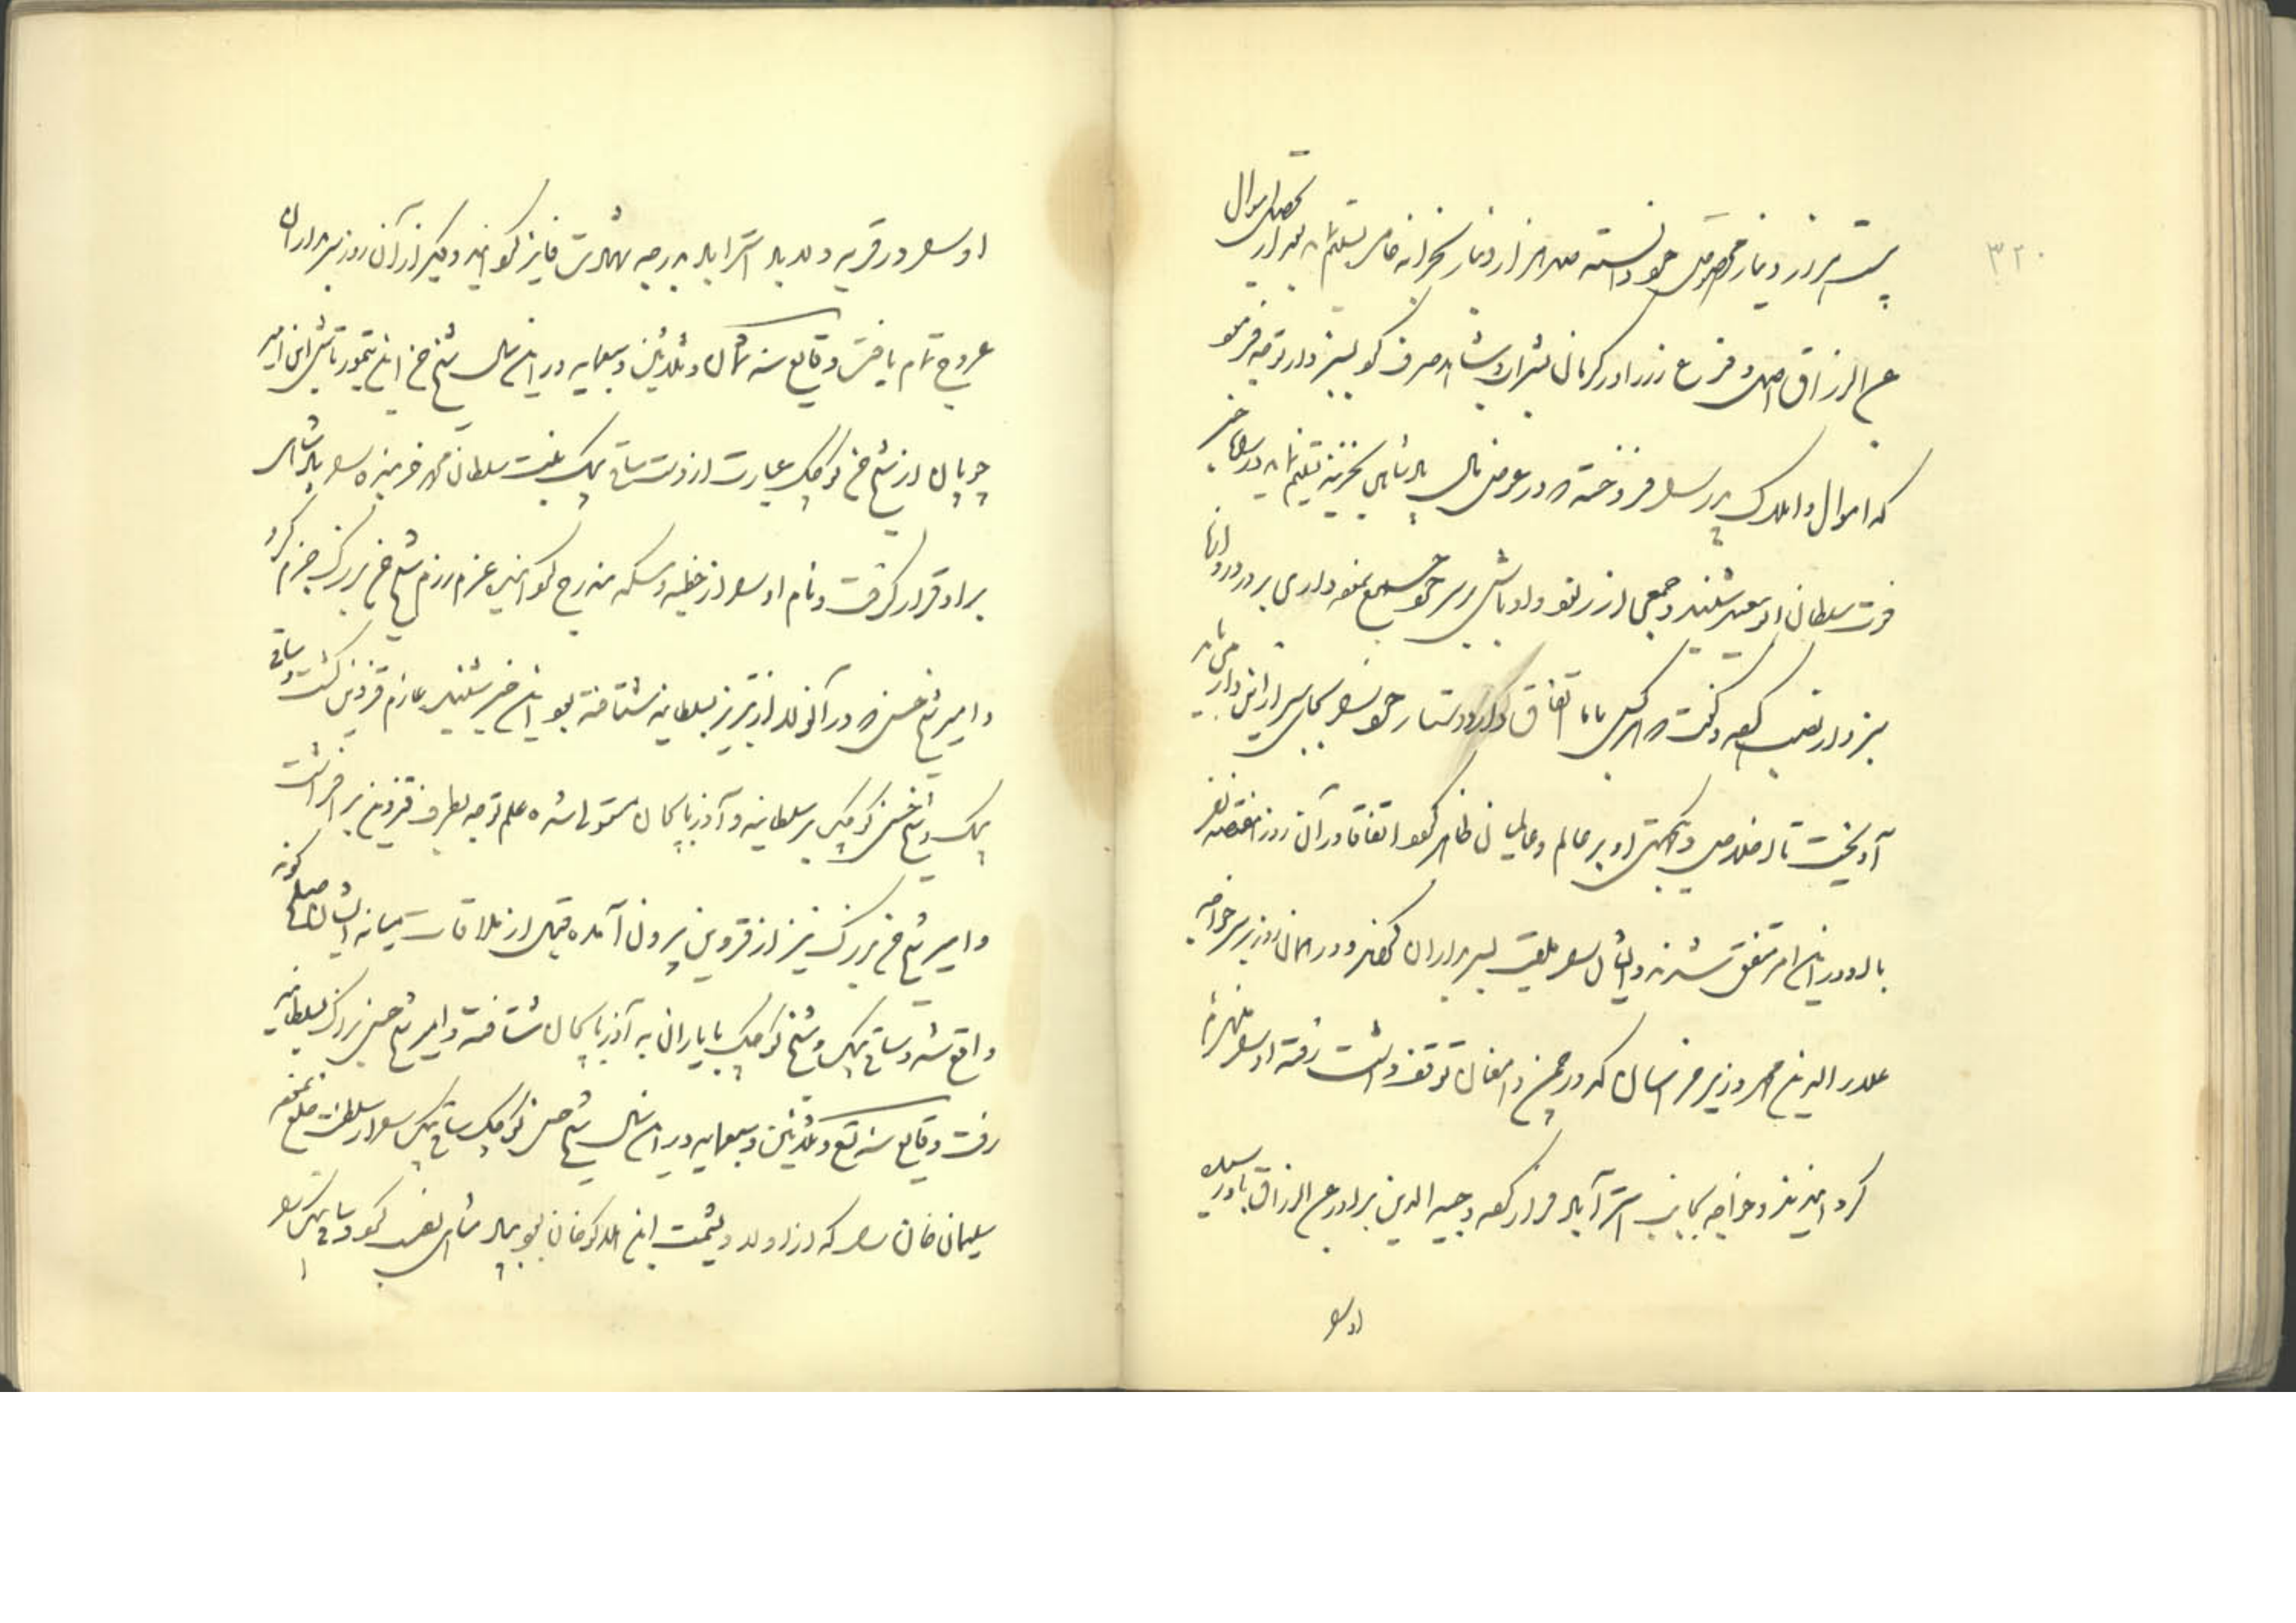 ۳۲۰
بیست هزار دینار مخصوص خود دانسته صد هزار دینار بخزانه خاص تسلیم نماید بعد از تحصیل اموال
عبدالرزاق اصل و فرع زر را در کرمان بشراب و شاهد صرف کرد بسبزوار توجه فرمود
که اموال و املاک پدر را فروخته در عوض مال پادشاهی بخزینه تسلیم نماید در راه خبر
فوت سلطان ابوسعید شنید و جمعی از رنود و اوباش بر سر خود جمع نموده داری بر در دروازه
سبزوار نصب کرده گفت هر کس با ما اتفاق دارد دستار خود را بجای سر از این دار
آویخت تا اخلاص و یکجهتی او بر عالم و عالمیان ظاهر گردد اتفاقا در آن روز هفتصد نفر
با او در این امر متفق شدند و ایشان را ملقب بسربداران کردند و در همان روز بر سر خواجه
علاء الدین محمد وزیر خراسان که در چمن دامغان توقف داشت رفته او را منهزم
گردانیدند و خواجه بجانب استرآباد فرار کرده وجیه الدین برادر عبدالرزاق با و رسیده
او را
او را در قریه ولاباد استراباد بدرجه شهادت فایز گردانید و دیگر از آن روز سربداران
عروج تمام یافت وقایع سنه ثمان و ثلاثین و سبعمایه در این سال شیخ حسن ابن تیمورتاش ابن امیر
چوپان از شیخ حسن کوچک عبارت از اوست ساتی بیک بنت سلطان محمد خربنده را بپادشاهی
برادر قرار گرفت و نام او را در خطبه و سکه مندرج گردانید عزم رزم شیخ حسن بزرگ جزم کرد
و امیر شیخ حسن در آن اولا از تبریز بسلطانیه شتافته بود این خبر شنید عازم قزوین گشت و ساتی
بیک و شیخ حسن کوچک بر سلطانیه و آذربایجان مستولی شده علم توجه بطرف قزوین برافراشت
و امیر شیخ حسن بزرگ نیز از قزوین بیرون آمده قبل از ملاقات میانه ایشان صلح گونه
واقع شد و ساتی بیک و شیخ کوچک با یاران به آذربایجان شتافته و امیر شیخ حسن بزرگ بسلطانیه
رفت وقایع سنه تسع و ثلاثین و سبعمایه در این سال شیخ حسن کوچک ساتی بیک را از سلطنت خلع نموده
سلیمان خان را که از اولاد یشمت ابن هلاکوخان بود بپادشاهی نصب کرد و ساتی بیک را